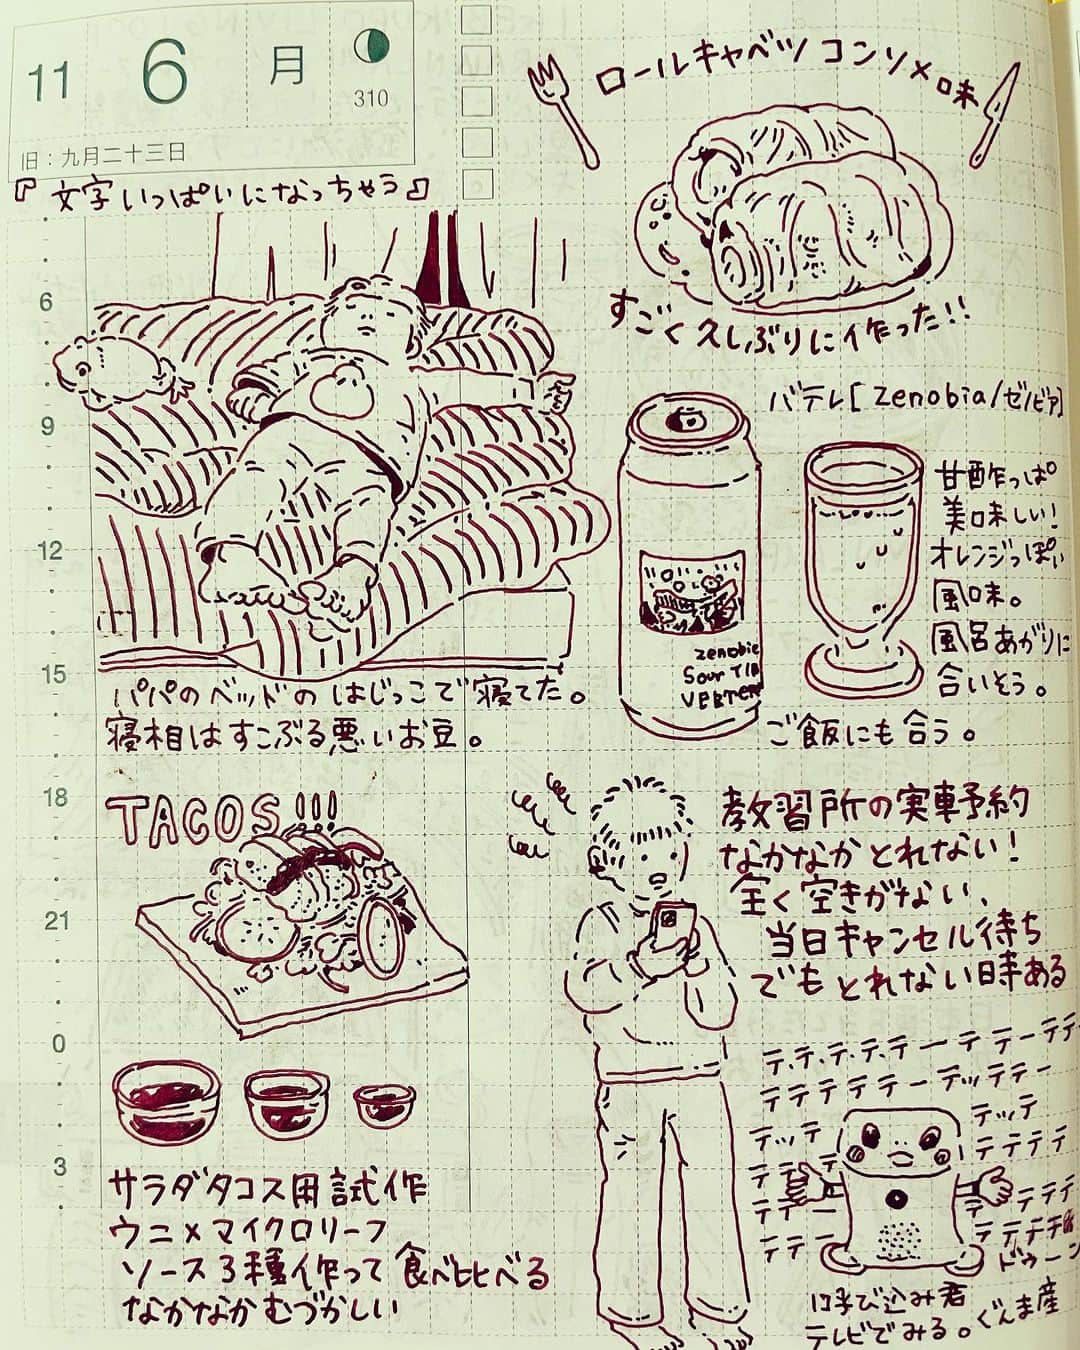 11 6 月
310
旧：九月二十三日
『文字いっぱいになっちゃう』
ロールキャベツ コンソメ味
すごく久しぶりに作った!!
6
9
12
15
18
21
0
3
パパのベッドのはじっこで寝てた。
寝相はすこぶる悪いお豆。
バテレ[zenobia/ゼノビア]
甘酢っぱ
美味しい!
オレンジっぽい
風味。
風呂あがりに
合いそう。
ご飯にも合う。
zenobia
Sour
TACOS!!!
サラダタコス用試作
ウニ×マイクロリーフ
ソース3種作って食べ比べる
なかなかむづかしい
教習所の実車予約
なかなかとれない!
全く空きがない、
当日キャンセル待ち
でもとれない時ある
テ・テ・テ・テ・テーテテーテテ
テテテテテーテッテテー
テッテ
テッテ
テテテテ
テテテ
テテー
テテー
ドゥーン
呼び込み君
テレビでみる。ぐんま産